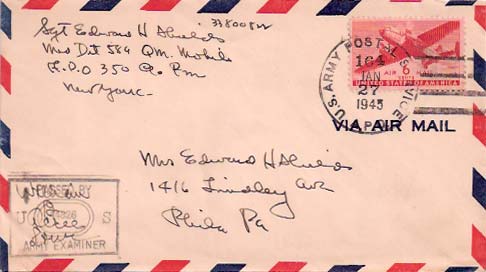 Sgt Edward H Shields 33800812
Med Det 584 Q.M. Mobile
A.P.O 350 C/o P.M
New York
U.S. ARMY POSTAL SERVICE
164
JAN
27
1945
A.P.O.
AIR MAIL
6 CENTS
UNITED STATES OF AMERICA
VIA AIR MAIL
Mrs Edward H Shields
1416 Lindley Ave
Phila Pa
PASSED BY
U S
ARMY EXAMINER